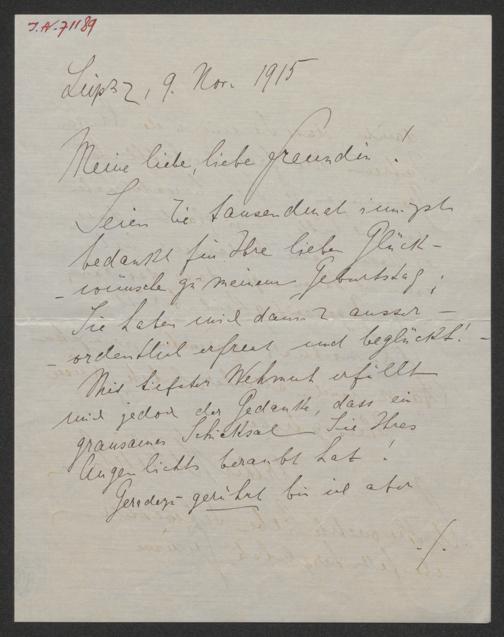 J.N. 71189
Leipzig, 9. Nov. 1915
Meine liebe, liebe Freundin!
Seien Sie tausendmal innigst
bedankt für Ihre lieben Glück-
-wünsche zu meinem Geburtstag;
Sie haben mich damit ausser-
-ordentlich erfreut und beglückt! -
Mit tiefster Wehmut erfüllt
mich jedoch der Gedanke, dass ein
grausames Schicksal Sie Ihres
Augenlichts beraubt hat!
Geradezu gerührt bin ich aber
./.